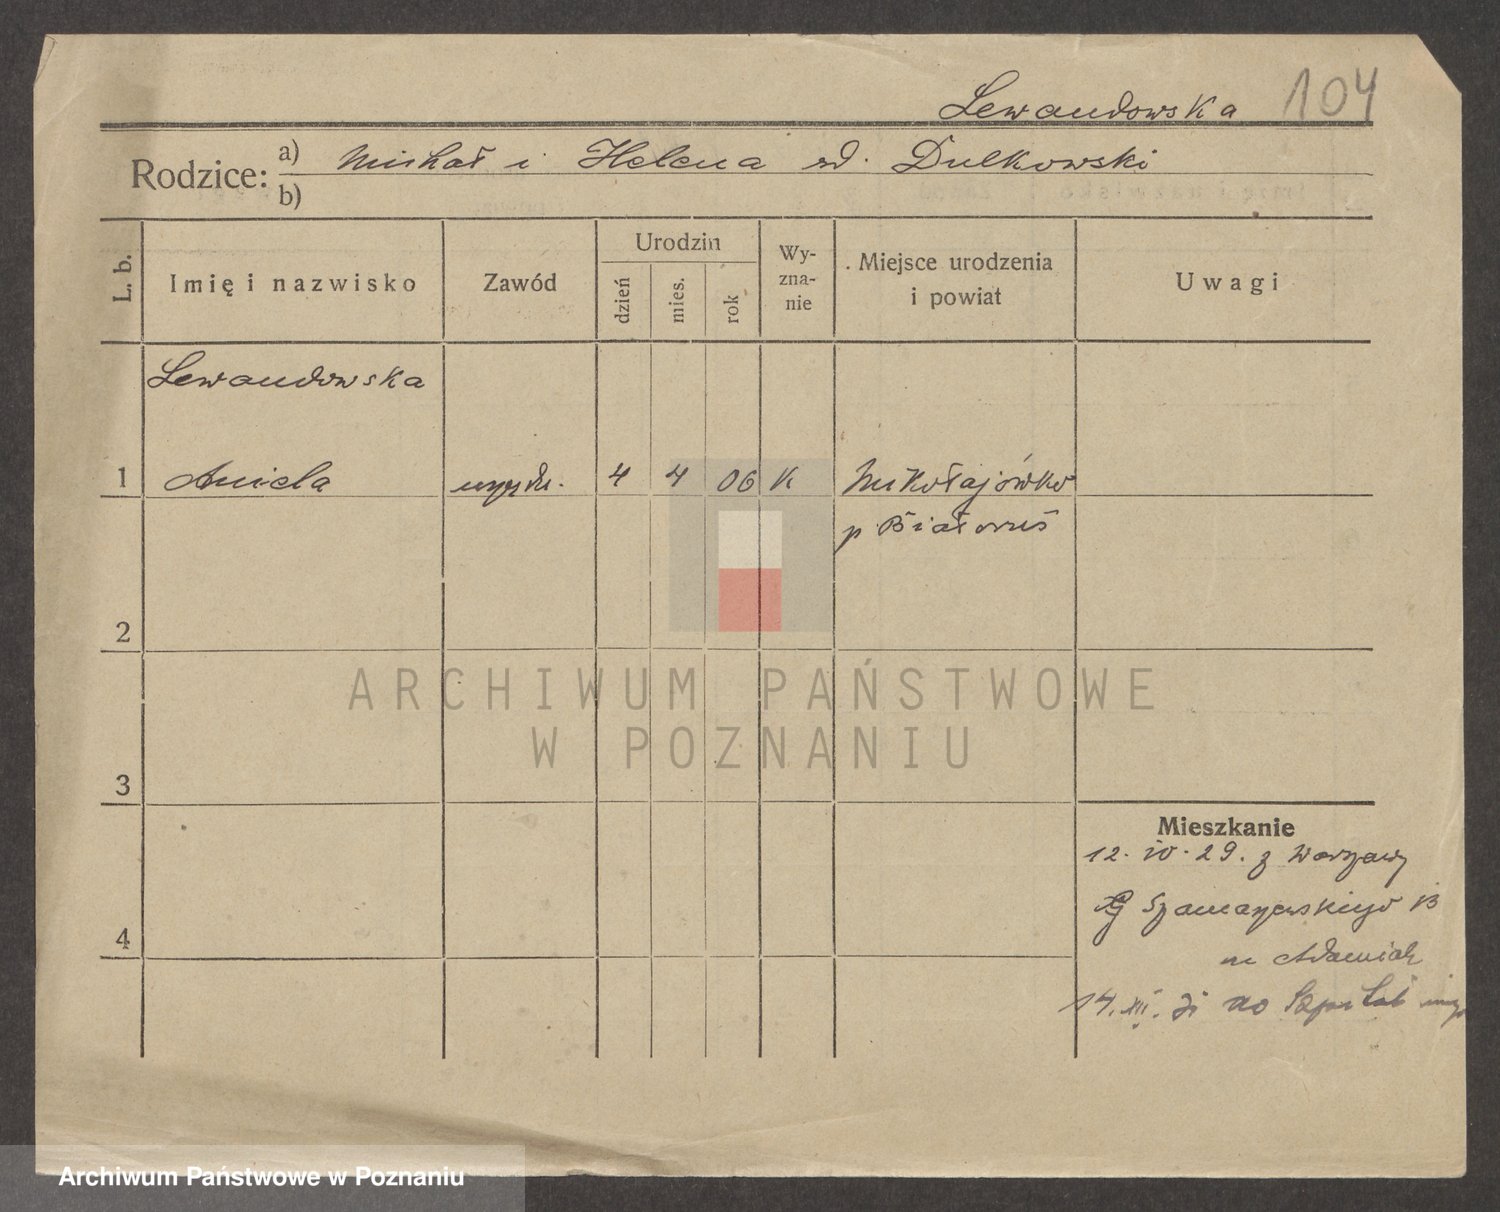 Lewandowska 104
Rodzice: a) Michał i Helena zd. Dulkowski
b)
L. b. Imię i nazwisko Zawód Urodzin dzień mies. rok Wy-zna-nie Miejsce urodzenia i powiat Uwagi
Lewandowska
1 Aniela 4 4 06 K Mikołajówko
p Białoruś
2
ARCHIWUM PAŃSTWOWE
W POZNANIU
3
Mieszkanie
12. IV. 29. z Warszawy
Szamarzewskiego 13
m Adamiak
4
14. XII. do Szpital
Archiwum Państwowe w Poznaniu